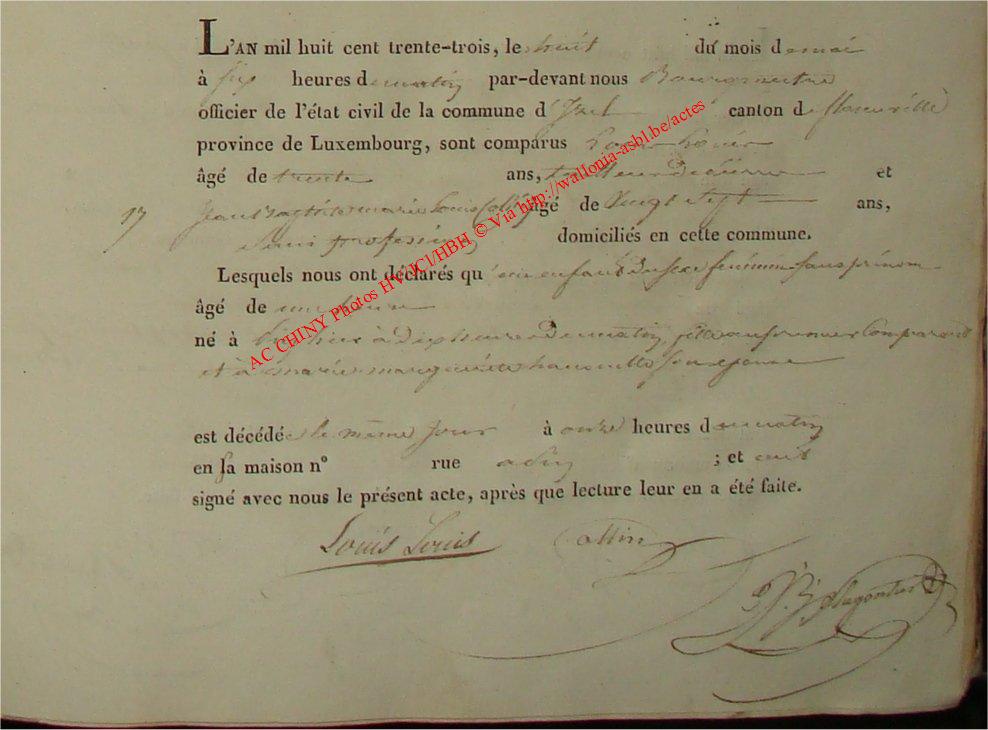 L'AN mil huit cent trente-trois, le huit du mois de mai
à six heures du matin par-devant nous Bourgmestre
officier de l'état civil de la commune d'Izel canton de florenville
province de Luxembourg, sont comparus Louis Louis
âgé de trente ans, tailleur de et
17 jean Baptiste marie Louis Collin âgé de vingt sept ans,
sans profession domiciliés en cette commune.
Lesquels nous ont déclarés qu'un enfant du sexe féminin sans prénom
âgé de une heure
né à hier à dix heures du matin, fille au premier Comparant
et à marie marguerite son épouse
est décédée le même jour à onze heures du matin
en sa maison n° rue ; et ont
signé avec nous le présent acte, après que lecture leur en a été faite.
Louis Louis Collin
AC CHINY Photos HV/JCI/HBH © Via http://wallonia-asbl.be/actes